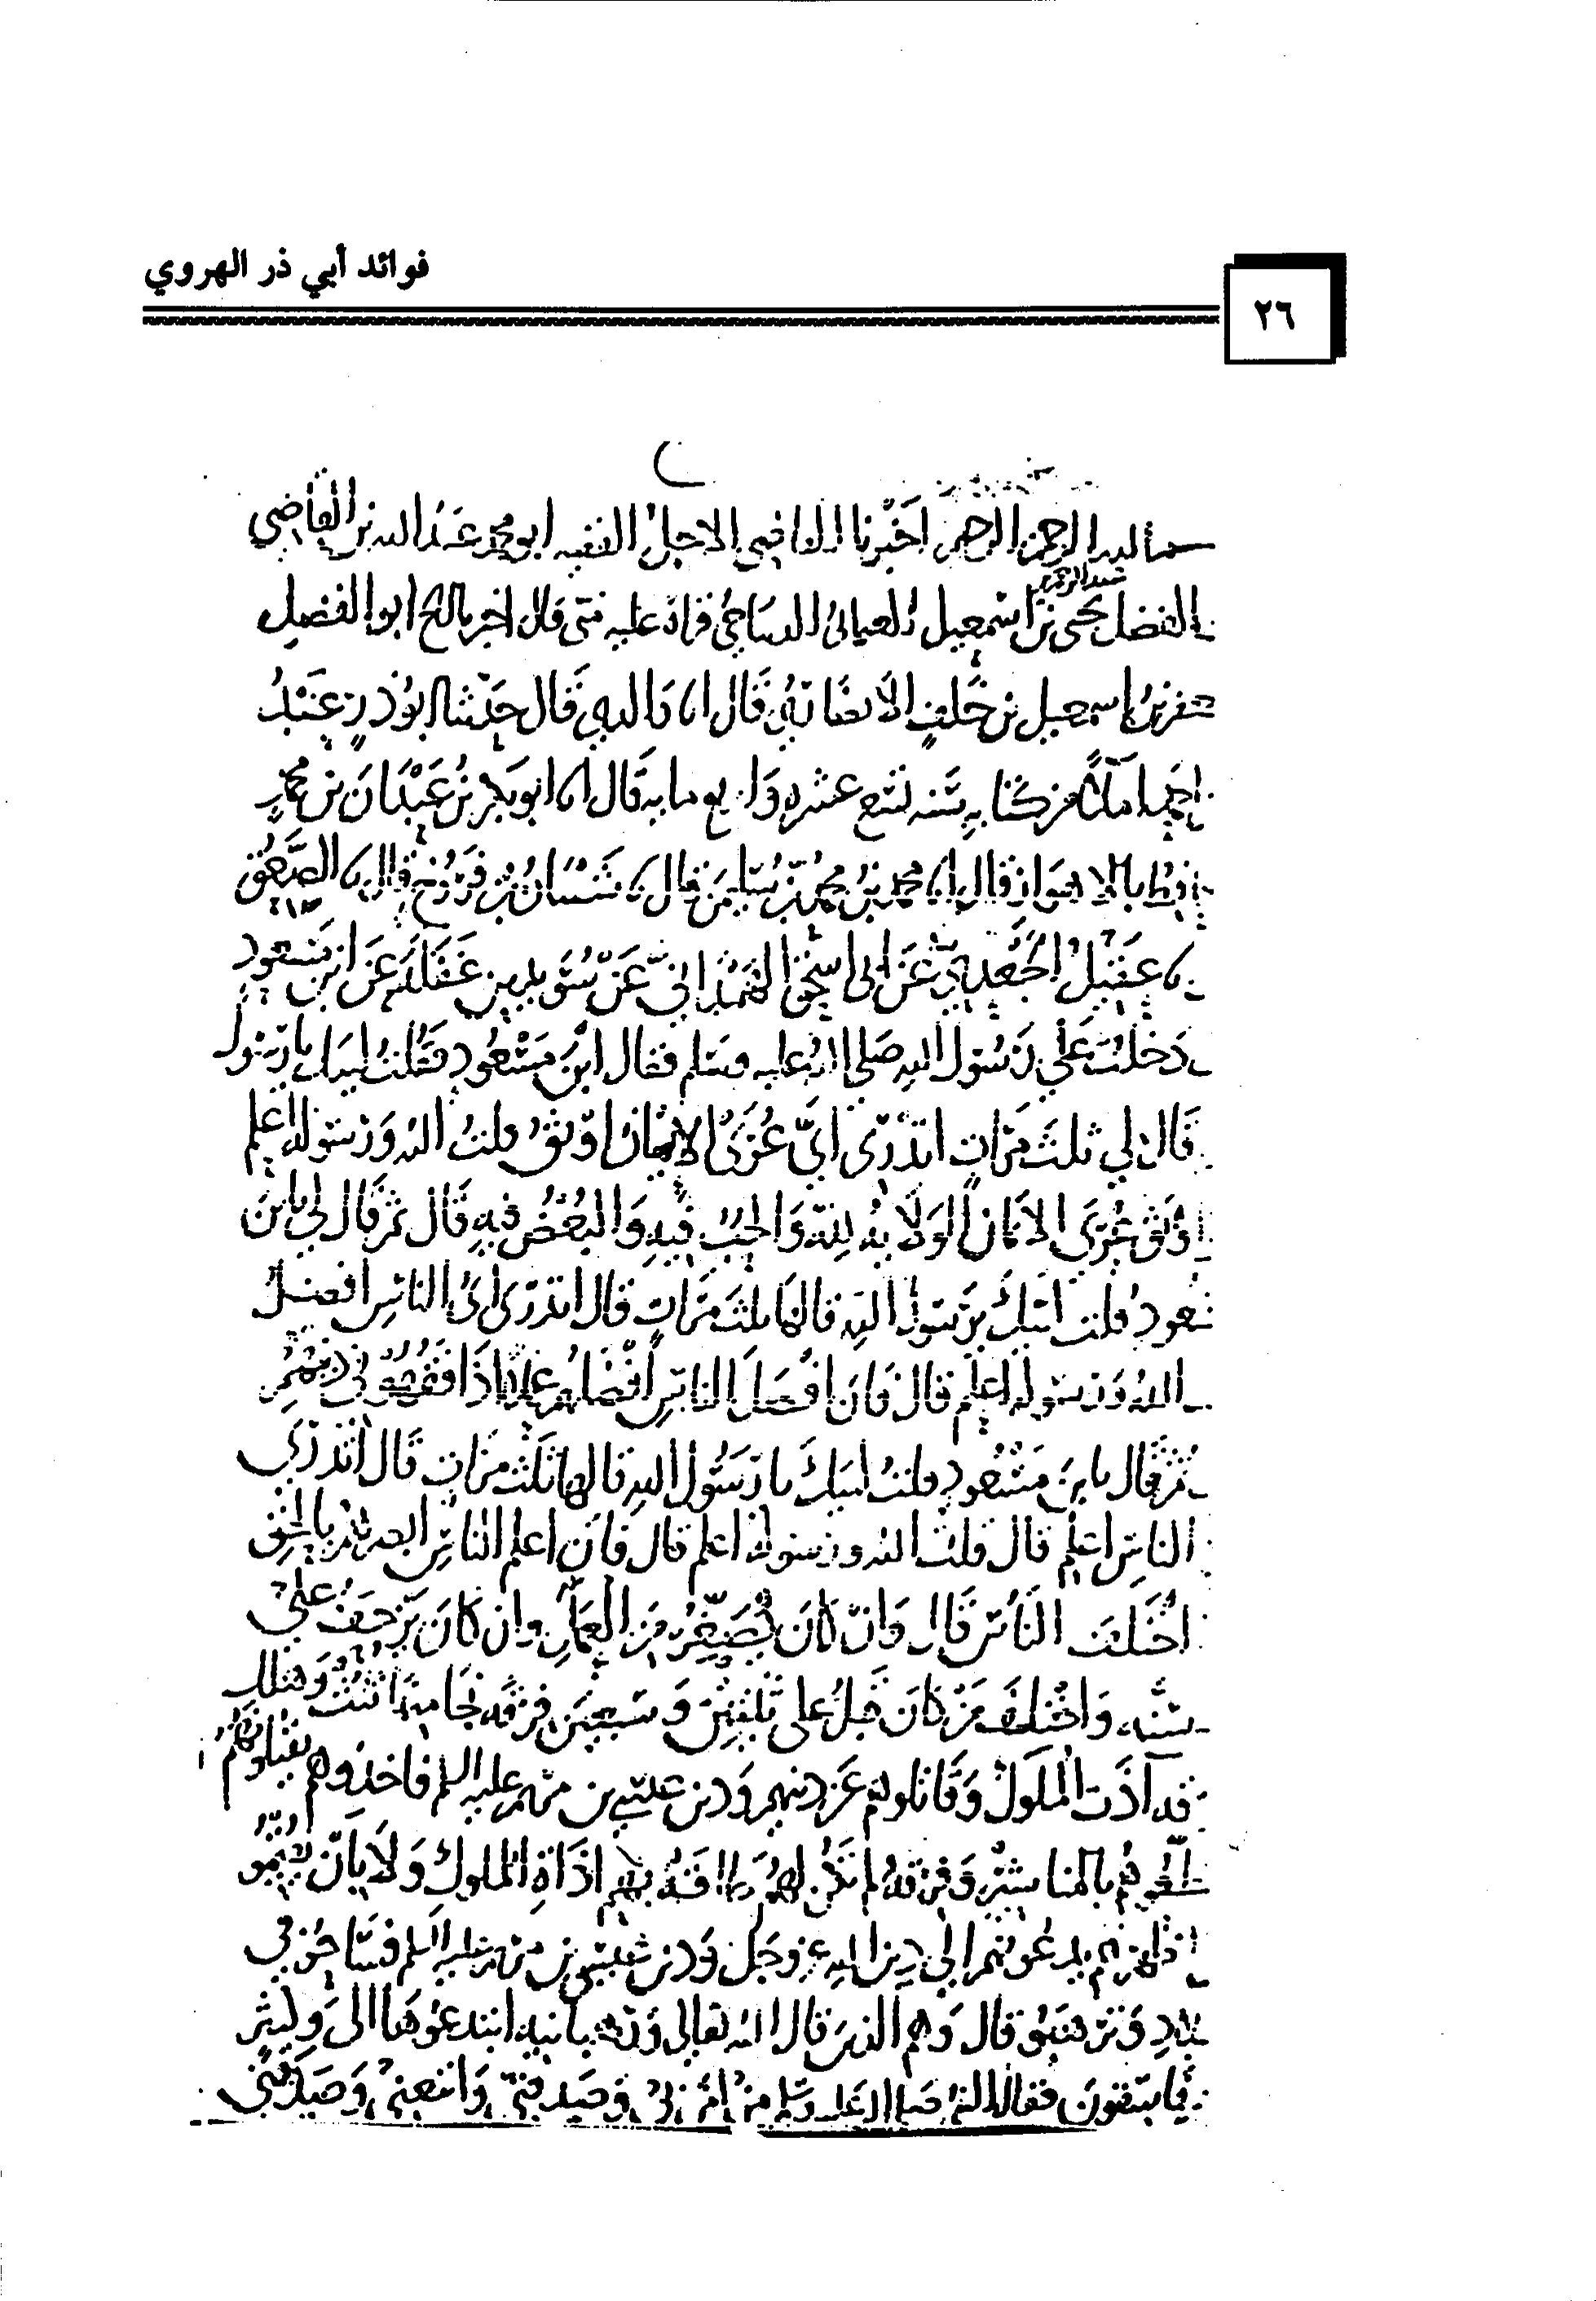 فوائد أبي ذر الهروي
٢٦
الله الرحمن الرحيم اخبرنا القاضي الاجل الفقيه ابو محمد عبد الله بن القاضي
الفضل يحيى بن اسمعيل العثماني الديباجي قراة عليه مني قال اخبرنا ابو الفضل
جعفر بن اسمعيل بن خلف الانصاري قال والدي قال حدثنا ابو ذر عبد
احمد املاء من كتابه سنه تسع عشره واربع مايه قال ابو بكر بن عبدان بن محمد
بالاهواز قال محمد بن محمد بن سليمن قال شيبان بن فروخ قال الصعق
عقيل الجعدي عن ابي اسحق الهمداني عن سويد بن غفله عن ابن مسعود
دخلت على رسول الله صلى الله عليه وسلم فقال ابن مسعود فقلت لبيك يا رسول
قال لي ثلث مرات اتدري اي عرى الايمان اوثق قلت الله ورسوله اعلم
اوثق عرى الايمان الولاية لله والحب فيه والبغض فيه قال ثم قال لي يا بن
قلت لبيك يرسول الله قالها ثلث مرات قال اتدري اي الناس افضل
الله ورسوله اعلم قال فان افضل الناس افضلهم عملا اذا فقهوا في دينهم
ثم قال يا بن مسعود قلت لبيك يا رسول الله قالها ثلث مرات قال اتدري
الناس اعلم قال قلت الله ورسوله اعلم قال فان اعلم الناس ابصرهم بالحق
اختلف الناس قال وان كان يقصر من العمل وان كان يزحف على
واختلف من كان قبل على ثنتين وسبعين فرقه نجا منها ثلث وهلك
اذت الملوك وقاتلوهم عن دينهم ودين عيسى بن مريم عليه السلم فاخذوهم
بالمناشير وفرقه لم تكن لهم طاقه اذاة الملوك ولا بان يقيموا
يدعونهم الى دين الله عز وجل ودين عيسى بن مريم عليه السلم فساحو في
وترهبو قال وهم الذين قال الله تعالى ورهبانية ابتدعوها الى وكثير
فقال النبي صلى الله عليه وسلم من امن بي وصدقني واتبعني وصدقني